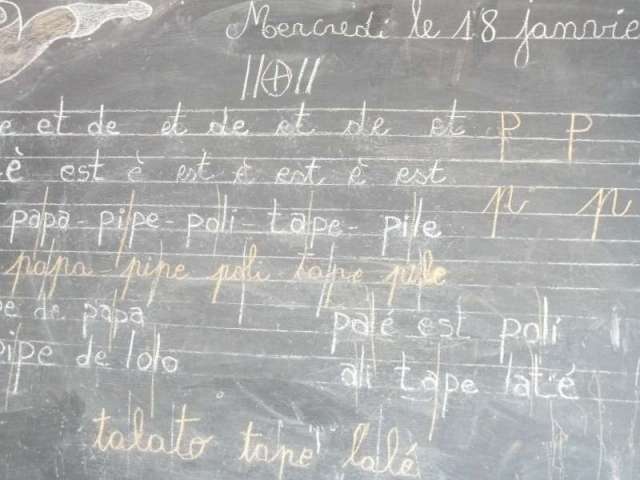 Mercredi le 18 janvie
e et de et de et de et
è est è est è est è est
p p
p p
papa - pipe - poli - tape - pile
papa pipe poli tape pile
pe de papa
palé est poli
pipe de lolo
ali tape latié
talato tape lalé